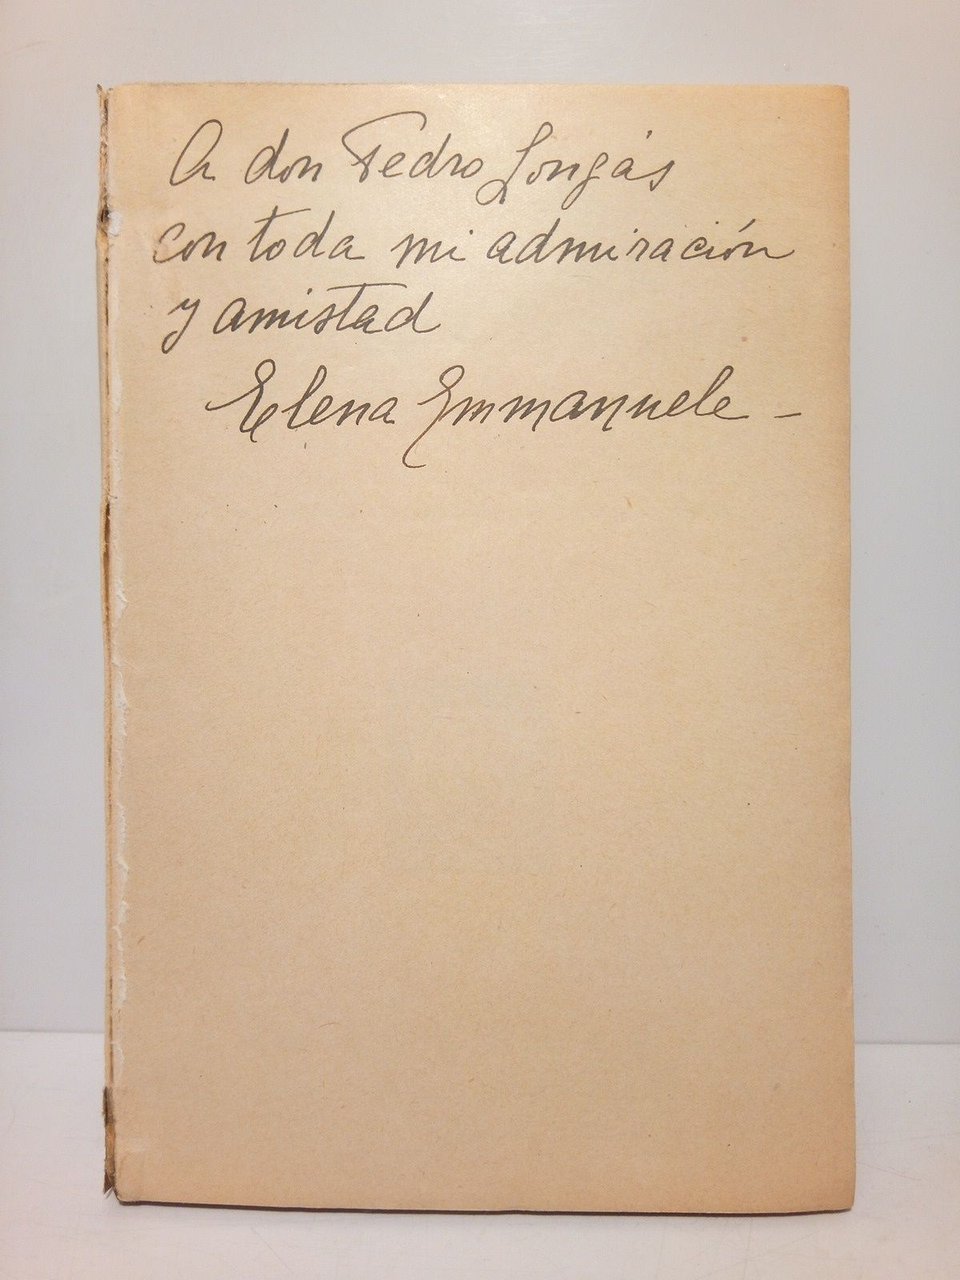 A don Pedro Longás
con toda mi admiración
y amistad
Elena Emmanuele -